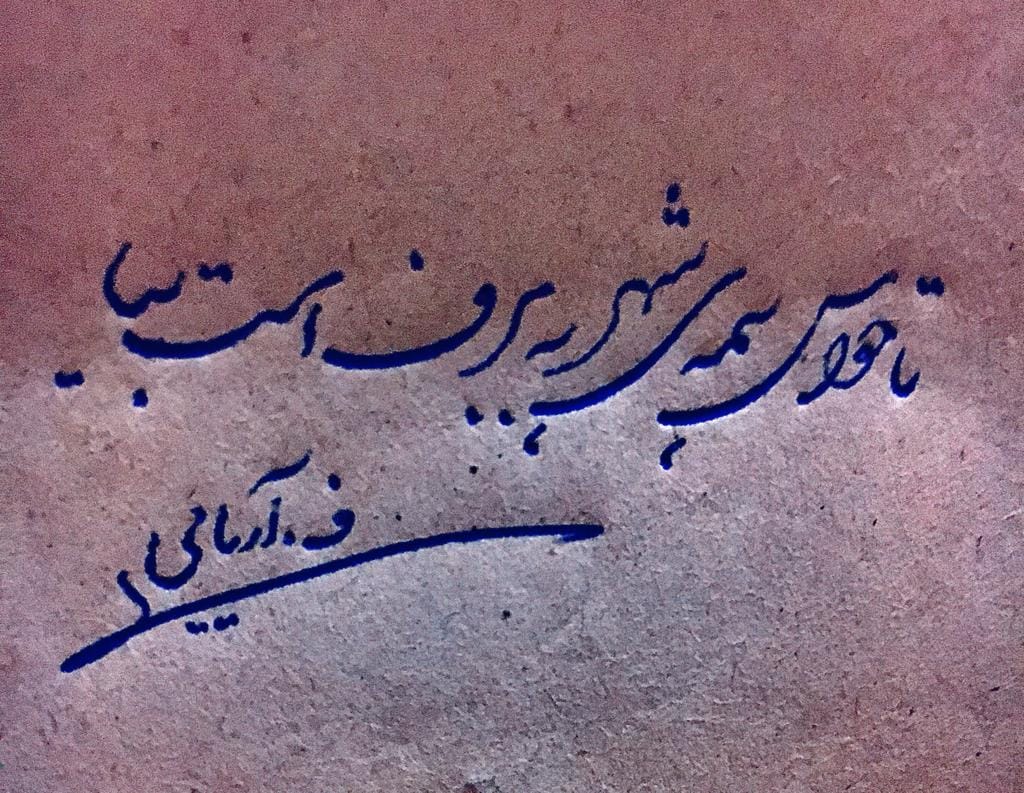 تا حواس همه ی شهر به برف است بیا
ف. آریایی